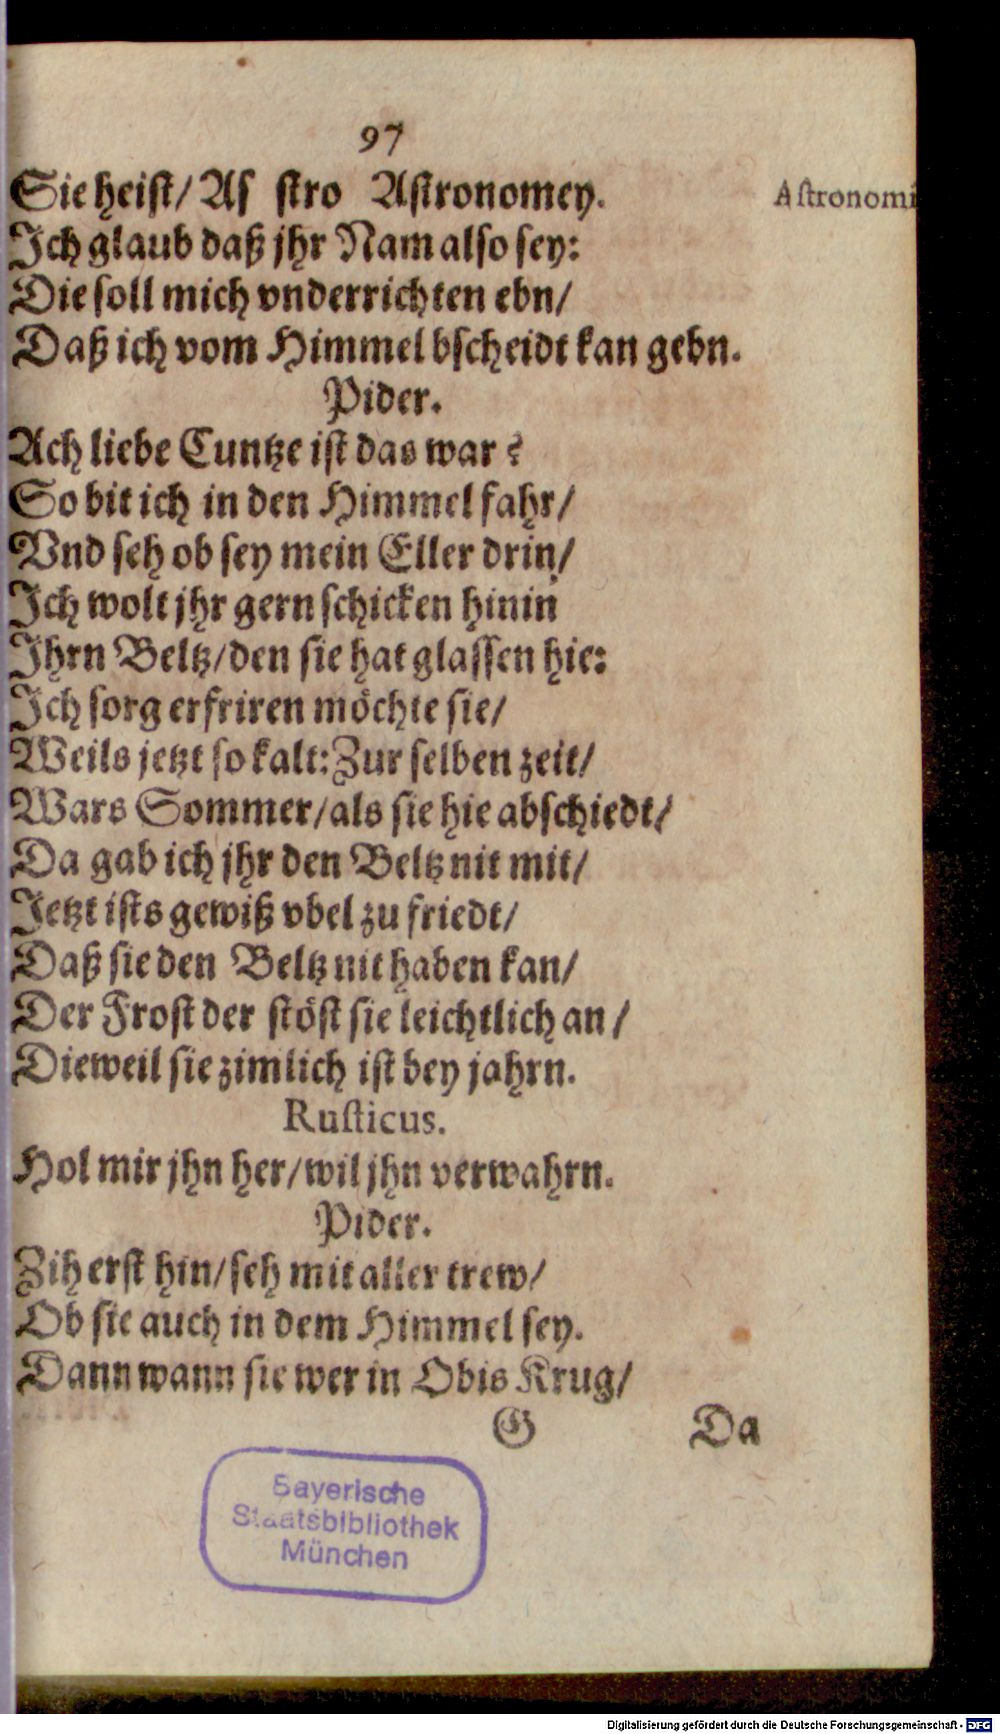 97
Sie heist/ As stro Astronomey.
Astronomi
Ich glaub daß jhr Nam also sey:
Die soll mich vnderrichten ebn/
Daß ich vom Himmel bscheidt kan gebn.
Pider.
Ach liebe Cuntze ist das war?
So bit ich in den Himmel fahr/
Vnd seh ob sey mein Eller drin/
Ich wolt jhr gern schicken hinin
Ihrn Beltz/ den sie hat glassen hie:
Ich sorg erfriren möchte sie/
Weils jetzt so kalt: Zur selben zeit/
Wars Sommer/ als sie hie abschiedt/
Da gab ich jhr den Beltz nit mit/
Jetzt ists gewiß vbel zu friedt/
Daß sie den Beltz nit haben kan/
Der Frost der stöst sie leichtlich an/
Dieweil sie zimlich ist bey jahrn.
Rusticus.
Hol mir jhn her/ wil jhn verwahrn.
Pider.
Zih erst hin/ seh mit aller trew/
Ob sie auch in dem Himmel sey.
Dann wann sie wer in Obis Krug/
G Da
Bayerische
Staatsbibliothek
München
Digitalisierung gefördert durch die Deutsche Forschungsgemeinschaft - DFG